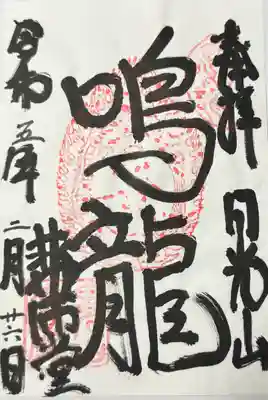 奉拝
日光山
鳴龍
薬師堂
令和五年
二月廿六日